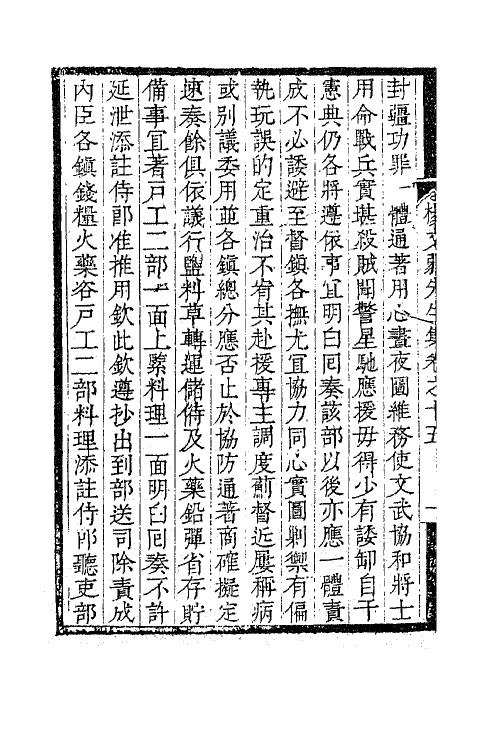 封疆功罪一體通著用心晝夜圖維務使文武協和將士
用命戰兵實堪殺賊聞警星馳應援毋得少有諉卸自干
憲典仍各將遵依事冝明白囘奏該部以後亦應一體責
成不必諉避至督鎮各撫尤冝協力同心實圖剿禦有偏
執玩誤的定重治不宥其赴援專主調度薊督近屢稱病
或别議委用並各鎮總分應否止於協防通著商確擬定
速奏餘俱依議行鹽料草轉運儲偫及火藥鉛彈省存貯
備事冝著戸工二部一面上緊料理一面明白囘奏不許
延泄添註侍郎准推用欽此欽遵抄出到部送司除責成
内臣各鎮錢糧火藥咨戸工二部料理添註侍郎聽吏部
楊文弱先生集卷之十五
一